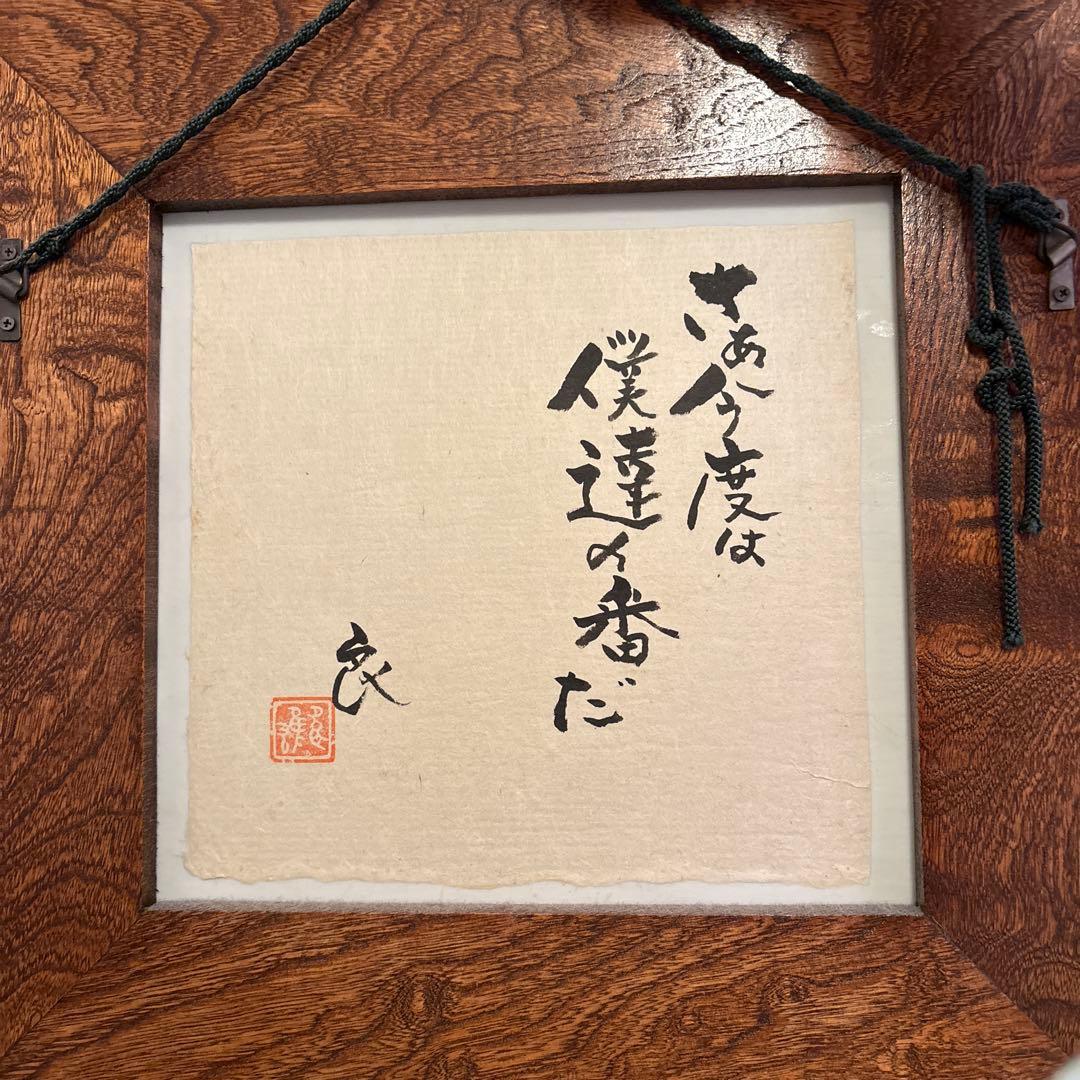 さあ今度は
僕達の番だ
良